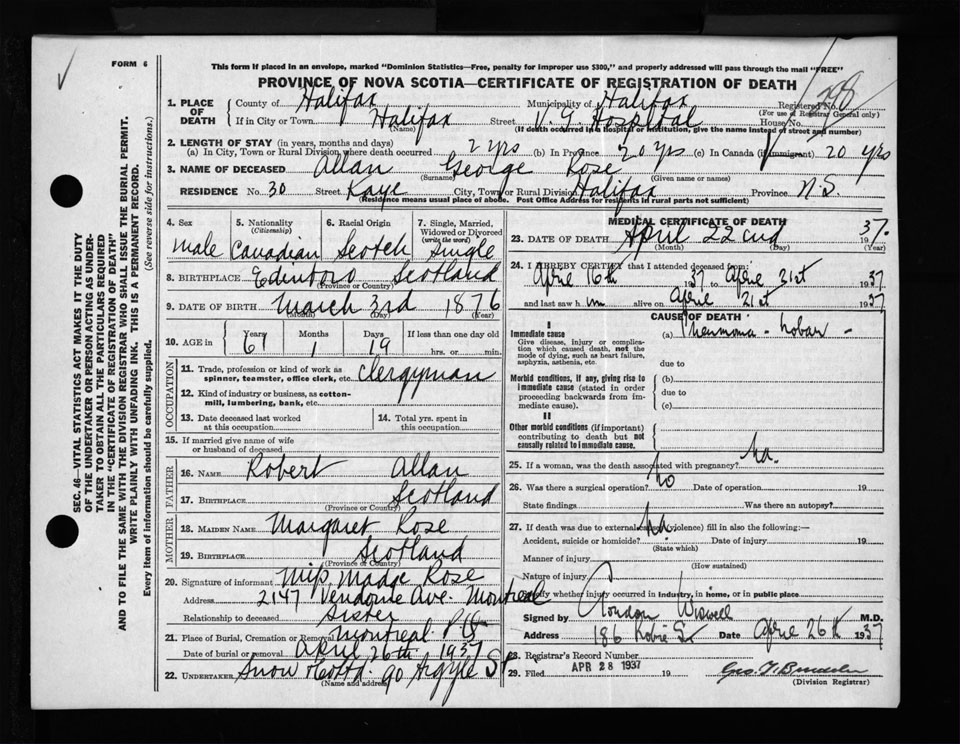 FORM 6
This form if placed in an envelope, marked "Dominion Statistics—Free, penalty for improper use $300," and properly addressed will pass through the mail "FREE"
PROVINCE OF NOVA SCOTIA—CERTIFICATE OF REGISTRATION OF DEATH
1. PLACE OF DEATH County of Halifax Municipality of Halifax Registered No.
(For use of Registrar General only)
If in City or Town Halifax Street V. G. Hospital House No.
(Name) (If death occurred in a hospital or institution, give the name instead of street and number)
2. LENGTH OF STAY (in years, months and days)
(a) In City, Town or Rural Division where death occurred 2 yrs (b) In Province 20 yrs (c) In Canada (if immigrant) 20 yrs
3. NAME OF DECEASED Allan George Rose
(Surname) (Given name or names)
RESIDENCE No. 30 Street Kaye City, Town or Rural Division Halifax Province N.S.
(Residence means usual place of abode. Post Office Address for residents in rural parts not sufficient)
4. Sex 5. Nationality (Citizenship) 6. Racial Origin 7. Single, Married, Widowed or Divorced (write the word)
male Canadian Scotch Single
8. BIRTHPLACE Edinboro Scotland
(Province or Country)
9. DATE OF BIRTH March 3rd 1876
(Month) (Day) (Year)
10. AGE in Years Months Days If less than one day old
61 1 19 hrs. or min.
OCCUPATION
11. Trade, profession or kind of work as spinner, teamster, office clerk, etc. Clergyman
12. Kind of industry or business, as cotton-mill, lumbering, bank, etc.
13. Date deceased last worked at this occupation 14. Total yrs. spent in this occupation
15. If married give name of wife or husband of deceased
FATHER
16. NAME Robert Allan
17. BIRTHPLACE Scotland
(Province or Country)
MOTHER
18. MAIDEN NAME Margaret Rose
19. BIRTHPLACE Scotland
(Province or Country)
20. Signature of informant Miss Madge Rose
Address 2147 Vendome Ave. Montreal
Relationship to deceased Sister
21. Place of Burial, Cremation or Removal Montreal P Q
Date of burial or removal April 26th 1937
22. UNDERTAKER Snow Co Ltd. 90 Argyle St
(Name and address)
MEDICAL CERTIFICATE OF DEATH
23. DATE OF DEATH April 22nd 37.
(Month) (Day) (Year)
24. I HEREBY CERTIFY that I attended deceased from:
April 16th 1937 to April 21st 1937
and last saw h im alive on April 21st 1937
CAUSE OF DEATH
I
Immediate cause (a) Pneumonia - Lobar -
Give disease, injury or complication which caused death, not the mode of dying, such as heart failure, asphyxia, asthenia, etc.
due to
Morbid conditions, if any, giving rise to immediate cause (stated in order proceeding backwards from immediate cause).
(b)
due to
(c)
II
Other morbid conditions (if important) contributing to death but not causally related to immediate cause.
25. If a woman, was the death associated with pregnancy? No.
26. Was there a surgical operation? No Date of operation 19
State findings Was there an autopsy?
27. If death was due to external causes (violence) fill in also the following:— No
Accident, suicide or homicide? Date of injury 19
(State which)
Manner of injury
(How sustained)
Nature of injury
Specify whether injury occurred in industry, in home, or in public place
Signed by Gordon Wiswell M.D.
Address 186 Robie St Date April 26th 1937
28. Registrar's Record Number
29. Filed APR 28 1937 19
(Division Registrar)
SEC. 46—VITAL STATISTICS ACT MAKES IT THE DUTY
OF THE UNDERTAKER OR PERSON ACTING AS UNDER-
TAKER TO OBTAIN ALL THE PARTICULARS REQUIRED
IN THE "CERTIFICATE OF REGISTRATION OF DEATH"
AND TO FILE THE SAME WITH THE DIVISION REGISTRAR WHO SHALL ISSUE THE BURIAL PERMIT.
WRITE PLAINLY WITH UNFADING INK. THIS IS A PERMANENT RECORD.
Every item of information should be carefully supplied. (See reverse side for instructions.)